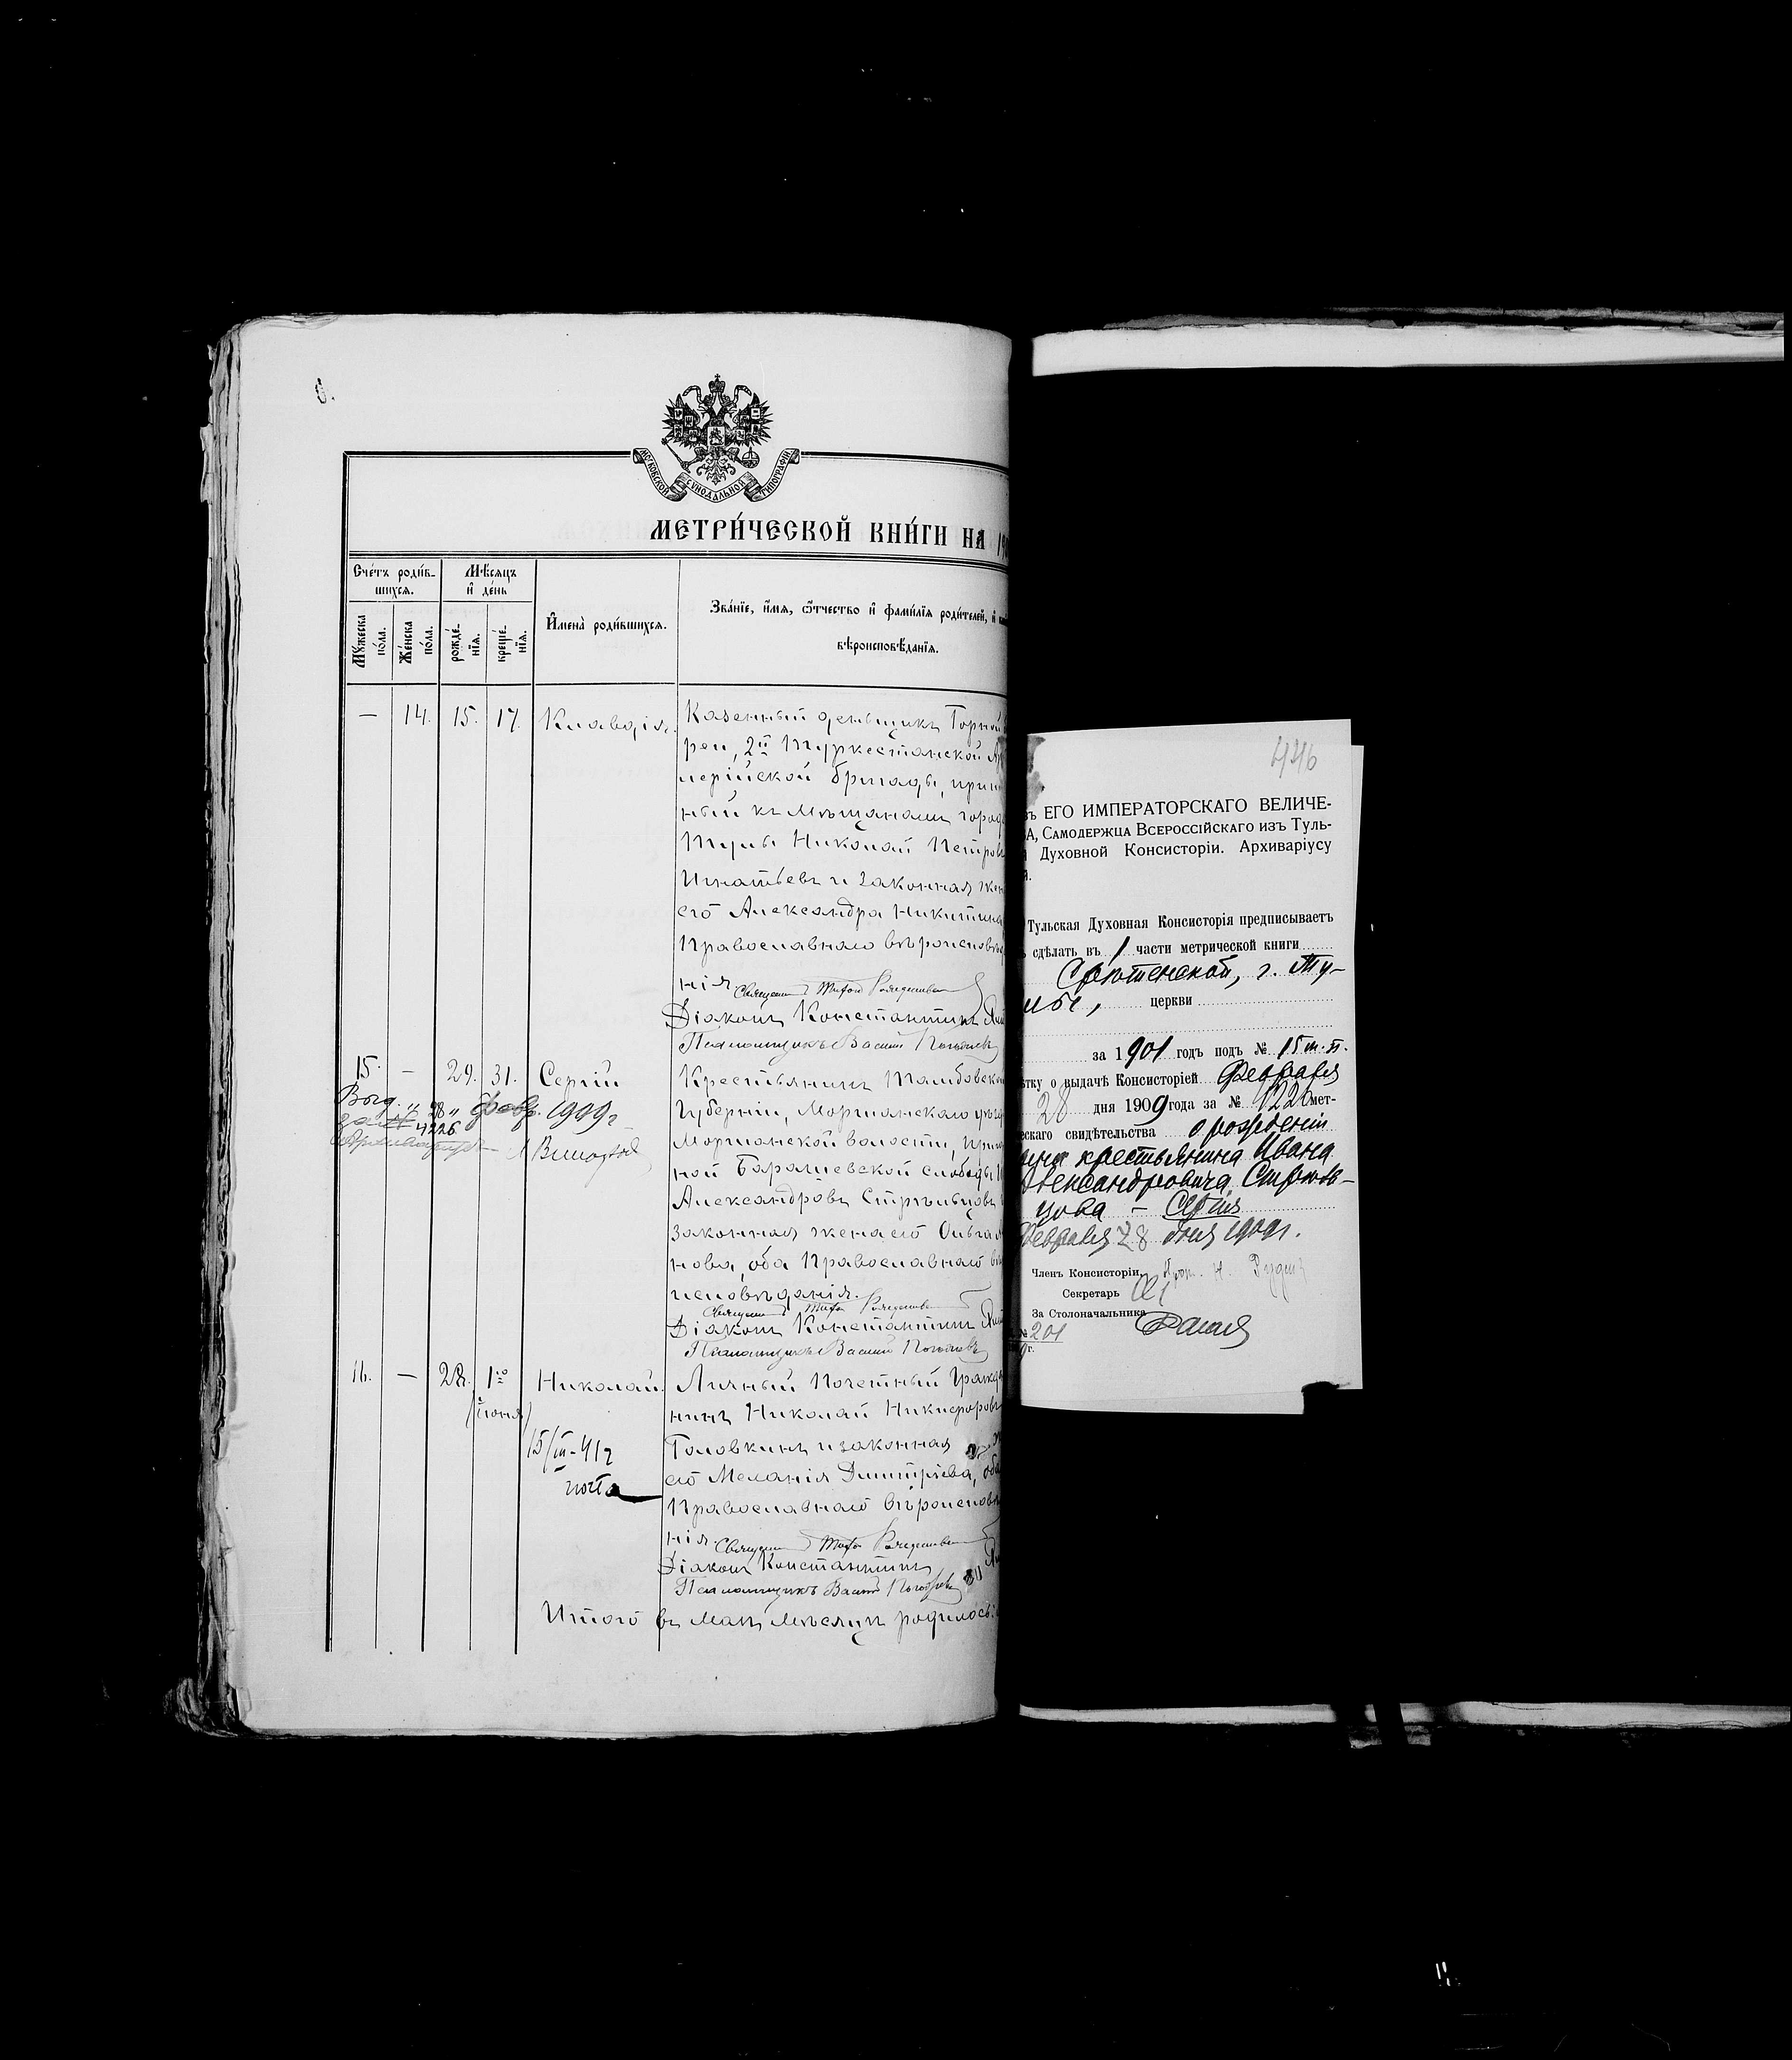 МОСКОВСКОЙ СУНОДАЛЬНОЙ ТИПОГРАФІИ
МЕТРИ́ЧЕСКОЙ КНИ́ГИ НА 190
Сче́тъ роди́в-
шихся.
Мꙋ́жеска по́ла.
Же́нска по́ла.
Мѣ́сяцъ
и҆ де́нь
рожде́-нїѧ.
креще́-нїѧ.
И҆мена̀ роди́вшихся.
Зва́нїе, и҆́мя, ѻ҆́тчество и҆ фами́лїя роди́телей, и҆
вѣроисповѣ́данїя.
— 14. 15. 17. Клавдія.
Казенный деньщикъ Горной
реи, 2й Туркестанской Ар
лерійской бригады, припи
ный къ мѣщанамъ города
Тулы Николай Петровъ
Игнатьевъ и законная жен
его Александра Никитина
Православнаго вѣроисповѣда
нія. Священникъ
Діаконъ Константинъ
Псаломщикъ Василій
15. — 29. 31. Сергій
Крестьянинъ Тамбовской
Губерніи, Моршанскаго уѣзда
Моршанской волости, при
ной Барашевской слободы И
Александровъ Стрѣльцовъ и
законная жена его Ольга
нова, оба Православнаго вѣ
исповѣданія.
Священникъ
Діаконъ Константинъ
Псаломщикъ Василій
Выд. „28„ февр. 1909 г
за № 4226
Архиваріусъ
16. — 28. 1го Николай.
(іюня)
15/III-41г
почта
Личный Почетный Гражда
нинъ Николай Никифоровъ
Головкинъ и законная жен
его Меланія Димитріева, оба
Православнаго вѣроисповѣда
нія. Священникъ
Діаконъ Константинъ
Псаломщикъ Василій
Итого въ Маѣ мѣсяцѣ родилось:
446
ЕГО ИМПЕРАТОРСКАГО ВЕЛИЧЕ-
А, Самодержца Всероссійскаго изъ Туль-
Духовной Консисторіи. Архиваріусу
Тульская Духовная Консисторія предписываетъ
сдѣлать въ 1 части метрической книги
Срѣтенской, г. Ту-
лѣ, церкви
за 1901 годъ подъ № 15 м. п.
тку о выдачѣ Консисторіей Февраля
28 дня 1909 года за № 4226 мет-
ескаго свидѣтельства о рожденіи
сына крестьянина Ивана
Александровича Стрѣль-
цова — Сергія
Февраля 28 дня 1909 г.
Членъ Консисторіи Прот. Н.
Секретарь
За Столоначальника
№ 201
г.